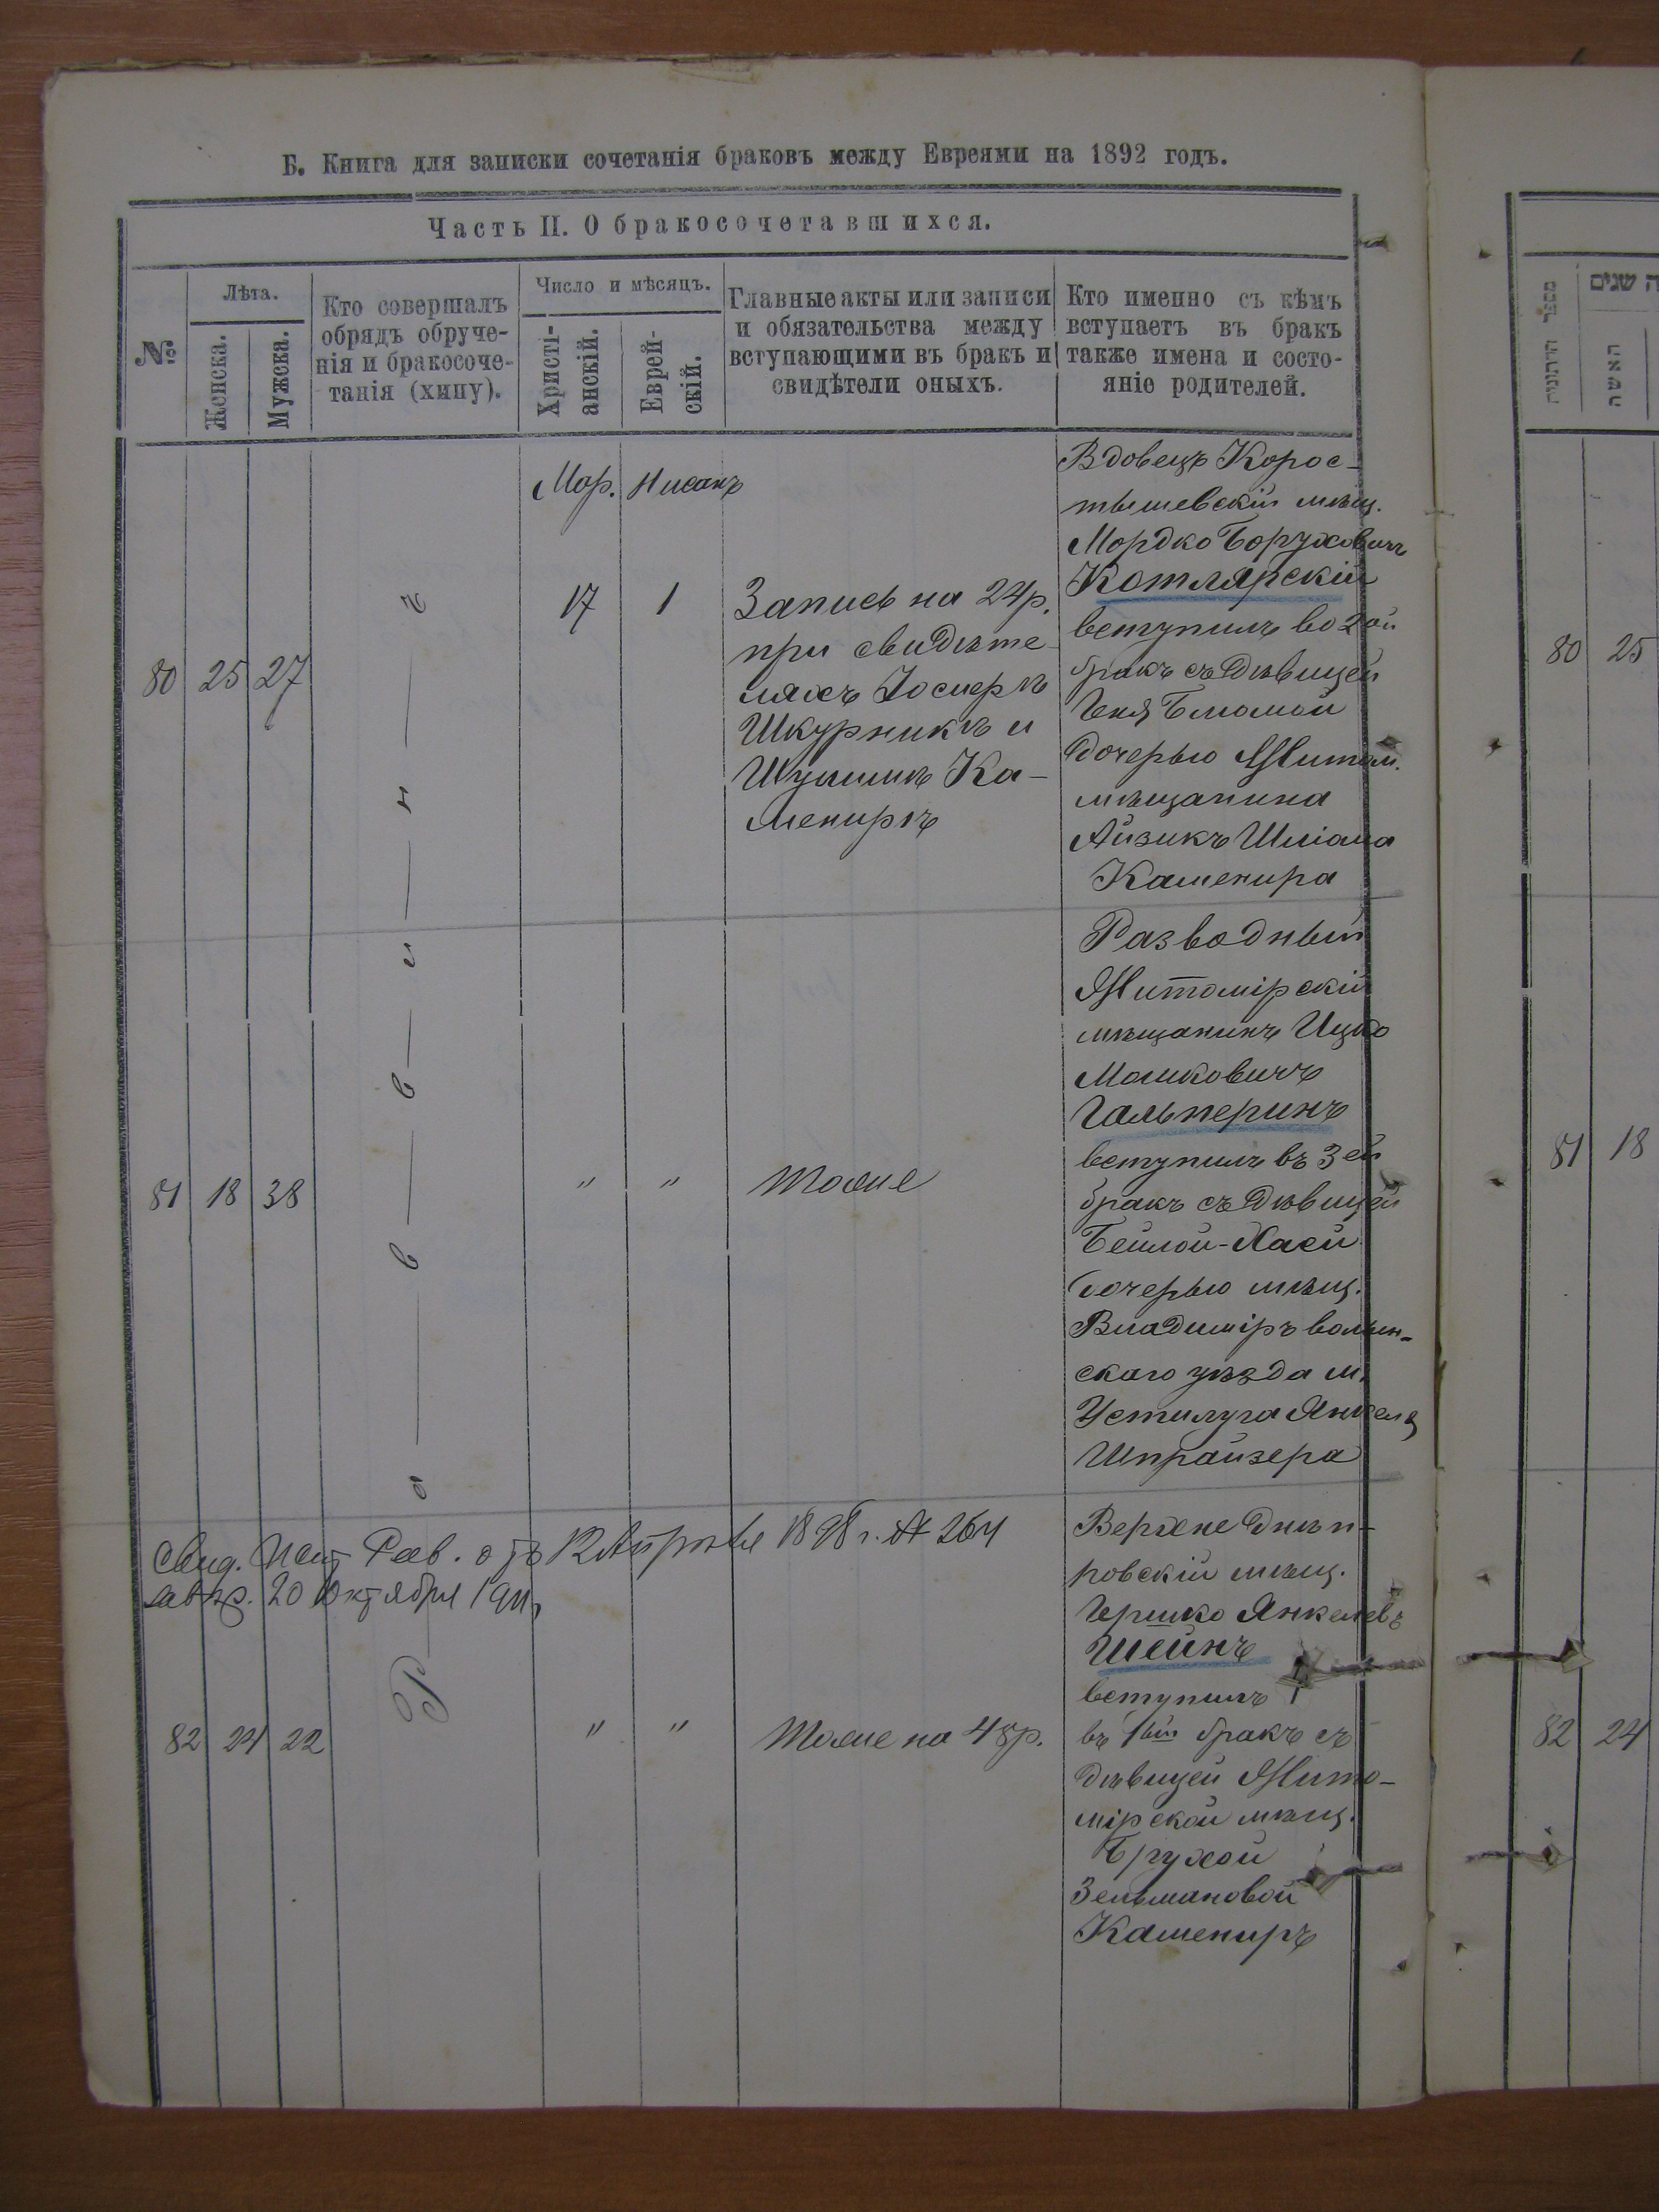 Б. Книга для записки сочетанія браковъ между Евреями на 1892 годъ.
Часть II. О бракосочетавшихся.
№
Лѣта.
Женска.
Мужска.
Кто совершалъ
обрядъ обруче-
нія и бракосоче-
танія (хипу).
Число и мѣсяцъ.
Христі-
анскій.
Еврей-
скій.
Главные акты или записи
и обязательства между
вступающими въ бракъ и
свидѣтели оныхъ.
Кто именно съ кѣмъ
вступаетъ въ бракъ
также имена и состо-
яніе родителей.
Р а в в и н ъ
Мар. Нисанъ
80 25 27
17 1
Запись на 24р.
при свидѣте-
ляхъ Іосперъ
Шкурникъ и
Шулимъ Ка-
мениръ
Вдовецъ Корос-
тышевскій мѣщ.
Мордко Боруховичъ
Котлярскій
вступилъ во 2ой
бракъ съ дѣвицей
Геня Блюмой
дочерью Житом.
мѣщанина
Айзикъ Шліома
Каменира
81 18 38
" " Тоже
Разводный
Житомірскій
мѣщанинъ Ицко
Мошковичъ
Гальперинъ
вступилъ въ 3ей
бракъ съ дѣвицей
Бейлой-Хаей
дочерью мѣщ.
Владиміръ волын-
скаго уѣзда м.
Устилуга Янкеля
Шпрайзера
Свид. Рав. отъ 12 Апрѣля 1898 г. № 264
20 Октября 1911
82 24 22
" " Тоже на 48р.
Верхне Днѣп-
ровскій мѣщ.
Гершко Янкелевъ
Шейнъ
вступилъ
въ 1ый бракъ съ
дѣвицей Жито-
мірской мѣщ.
Брухой
Зельмановой
Камениръ
מספר החתונות
ה שנים
האשה
80 25
81 18
82 24